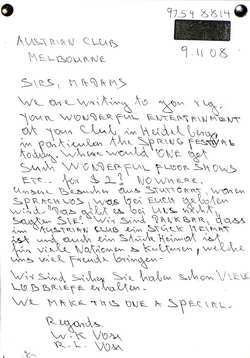 9754 8814
AUSTRIAN CLUB
MELBOURNE
9.11.08
SIRS, MADAMS
We are writing to you reg.
YOUR WONDERFUL ENTERTAINMENT
at your Club, in Heidelberg,
in particular the SPRING FESTIVAL
today. Where would ONE get
such WONDERFUL FLOOR SHOWS
ETC.. for $5? NOWHERE.
Unsere Besucher aus STUTTGART, waren
SPRACHLOS, was bei EUCH geboten
wird. Das gibt es bei UNS nicht
sagten SIE! Wir sind DANKBAR, dass
im AUSTRIAN CLUB ein STÜCK HEIMAT
ist und auch ein Stück Heimat ist
für viele Nationen & Kulturen, welche
uns viel Freude bringen.
Wir sind sicher Sie haben schon VIELE
LOBBRIEFE erhalten.
WE MAKE THIS ONE A SPECIAL.
Regards.
W.K Voss
R.L. Voss